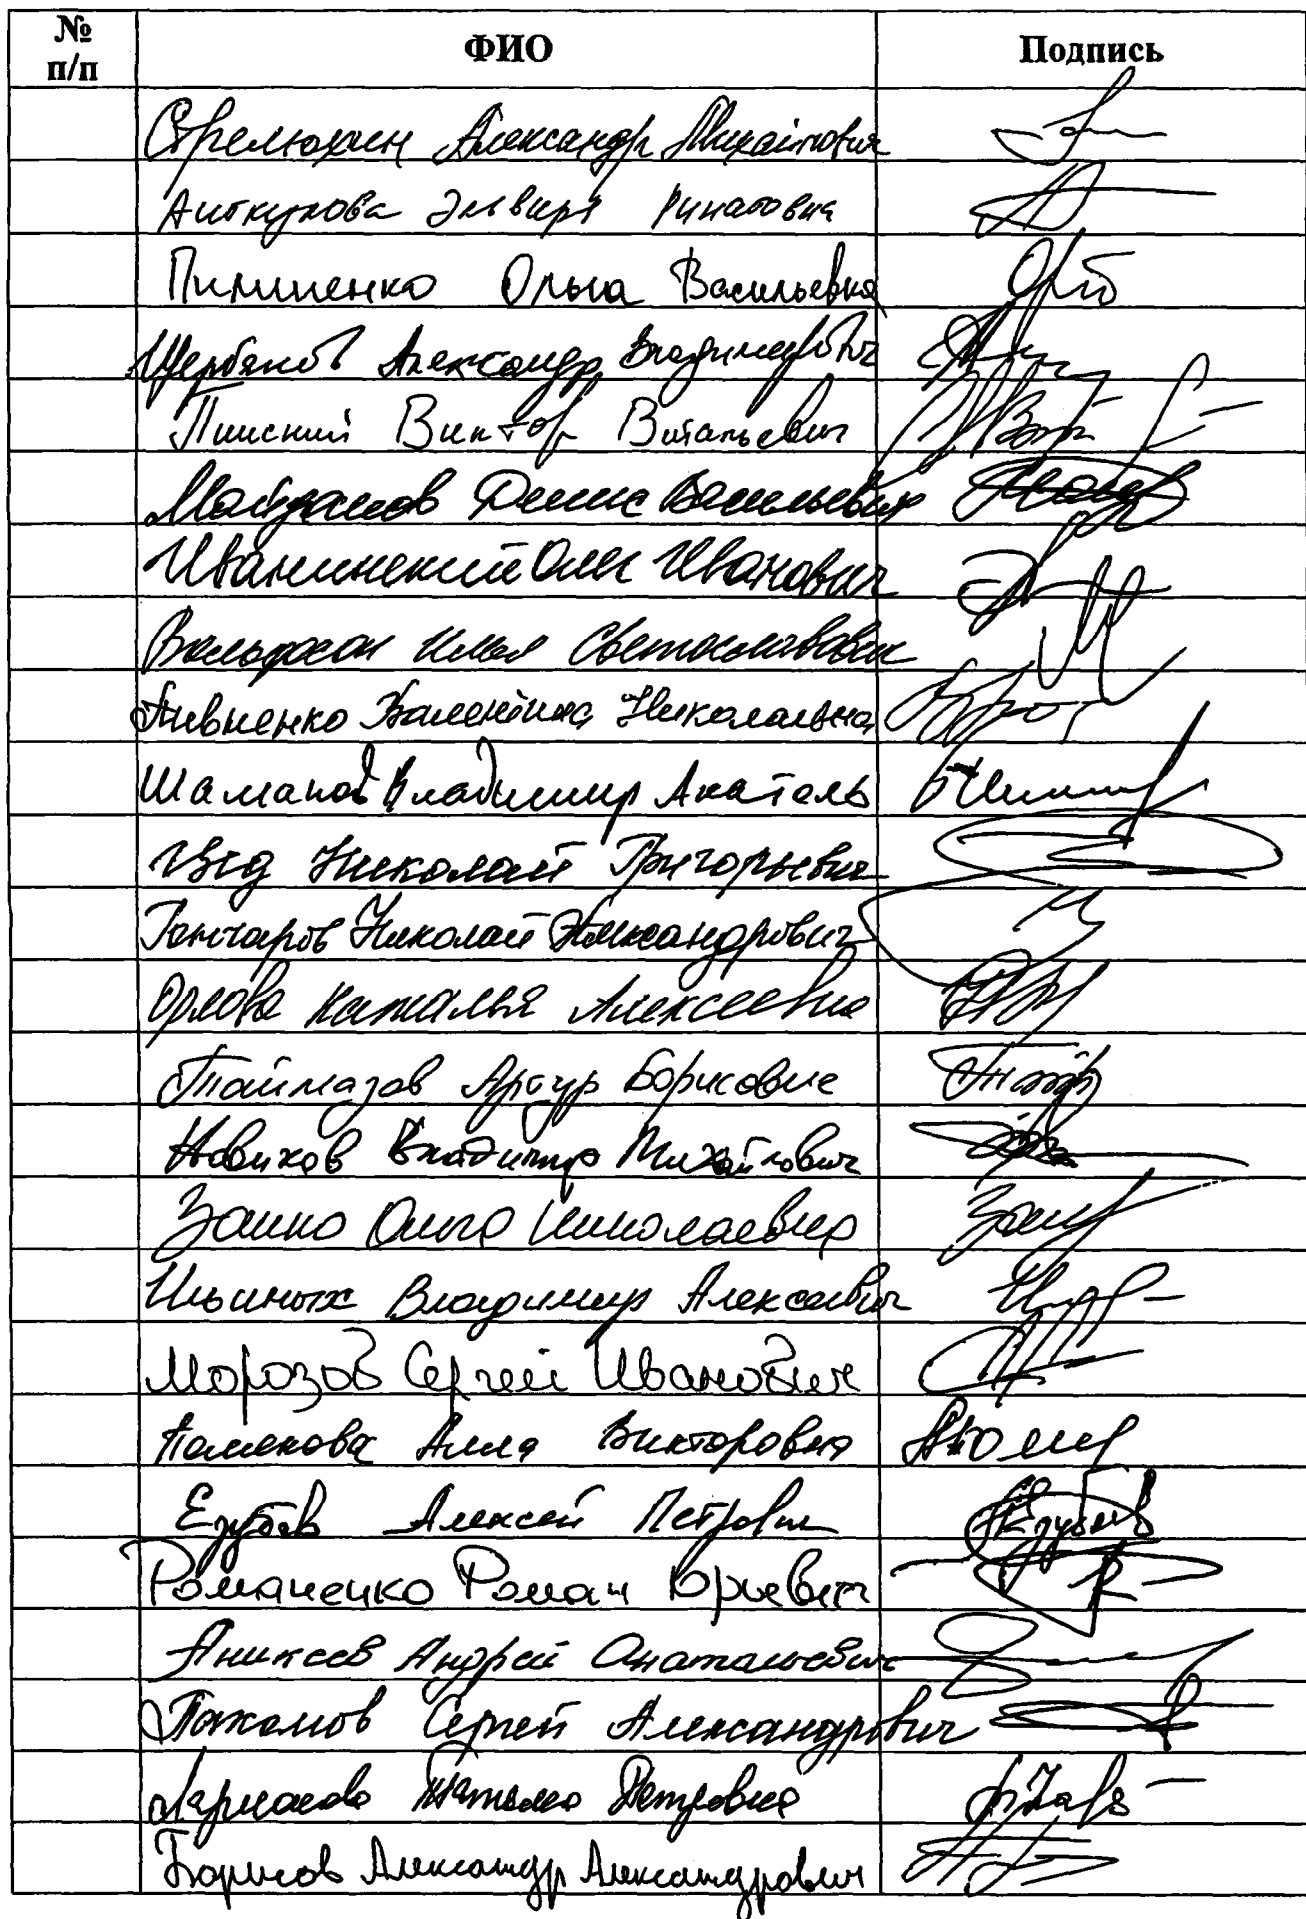 № п/п ФИО Подпись
Стрелюхин Александр Михайлович
Аиткулова Эльвира Ринатовна
Пилипенко Ольга Васильевна
Щербаков Александр Владимирович
Пинский Виктор Витальевич
Майданов Денис Васильевич
Иванинский Олег Иванович
Вольфсон Илья Светославович
Пивненко Валентина Николаевна
Шаманов Владимир Анатоль
Николай Григорьевич
Гончаров Николай Александрович
Орлова Наталья Алексеевна
Таймазов Артур Борисович
Новиков Владимир Михайлович
Занко Ольга Николаевна
Ильиных Владимир Алексеевич
Морозов Сергей Иванович
Алла Викторовна
Езубов Алексей Петрович
Романенко Роман Юрьевич
Аникеев Андрей Анатольевич
Пахомов Сергей Александрович
Ларионова Татьяна Петровна
Борисов Александр Александрович